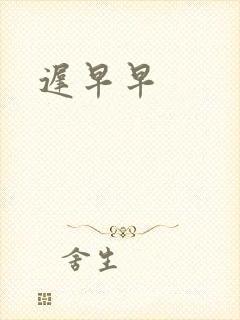 遲早早
舍生